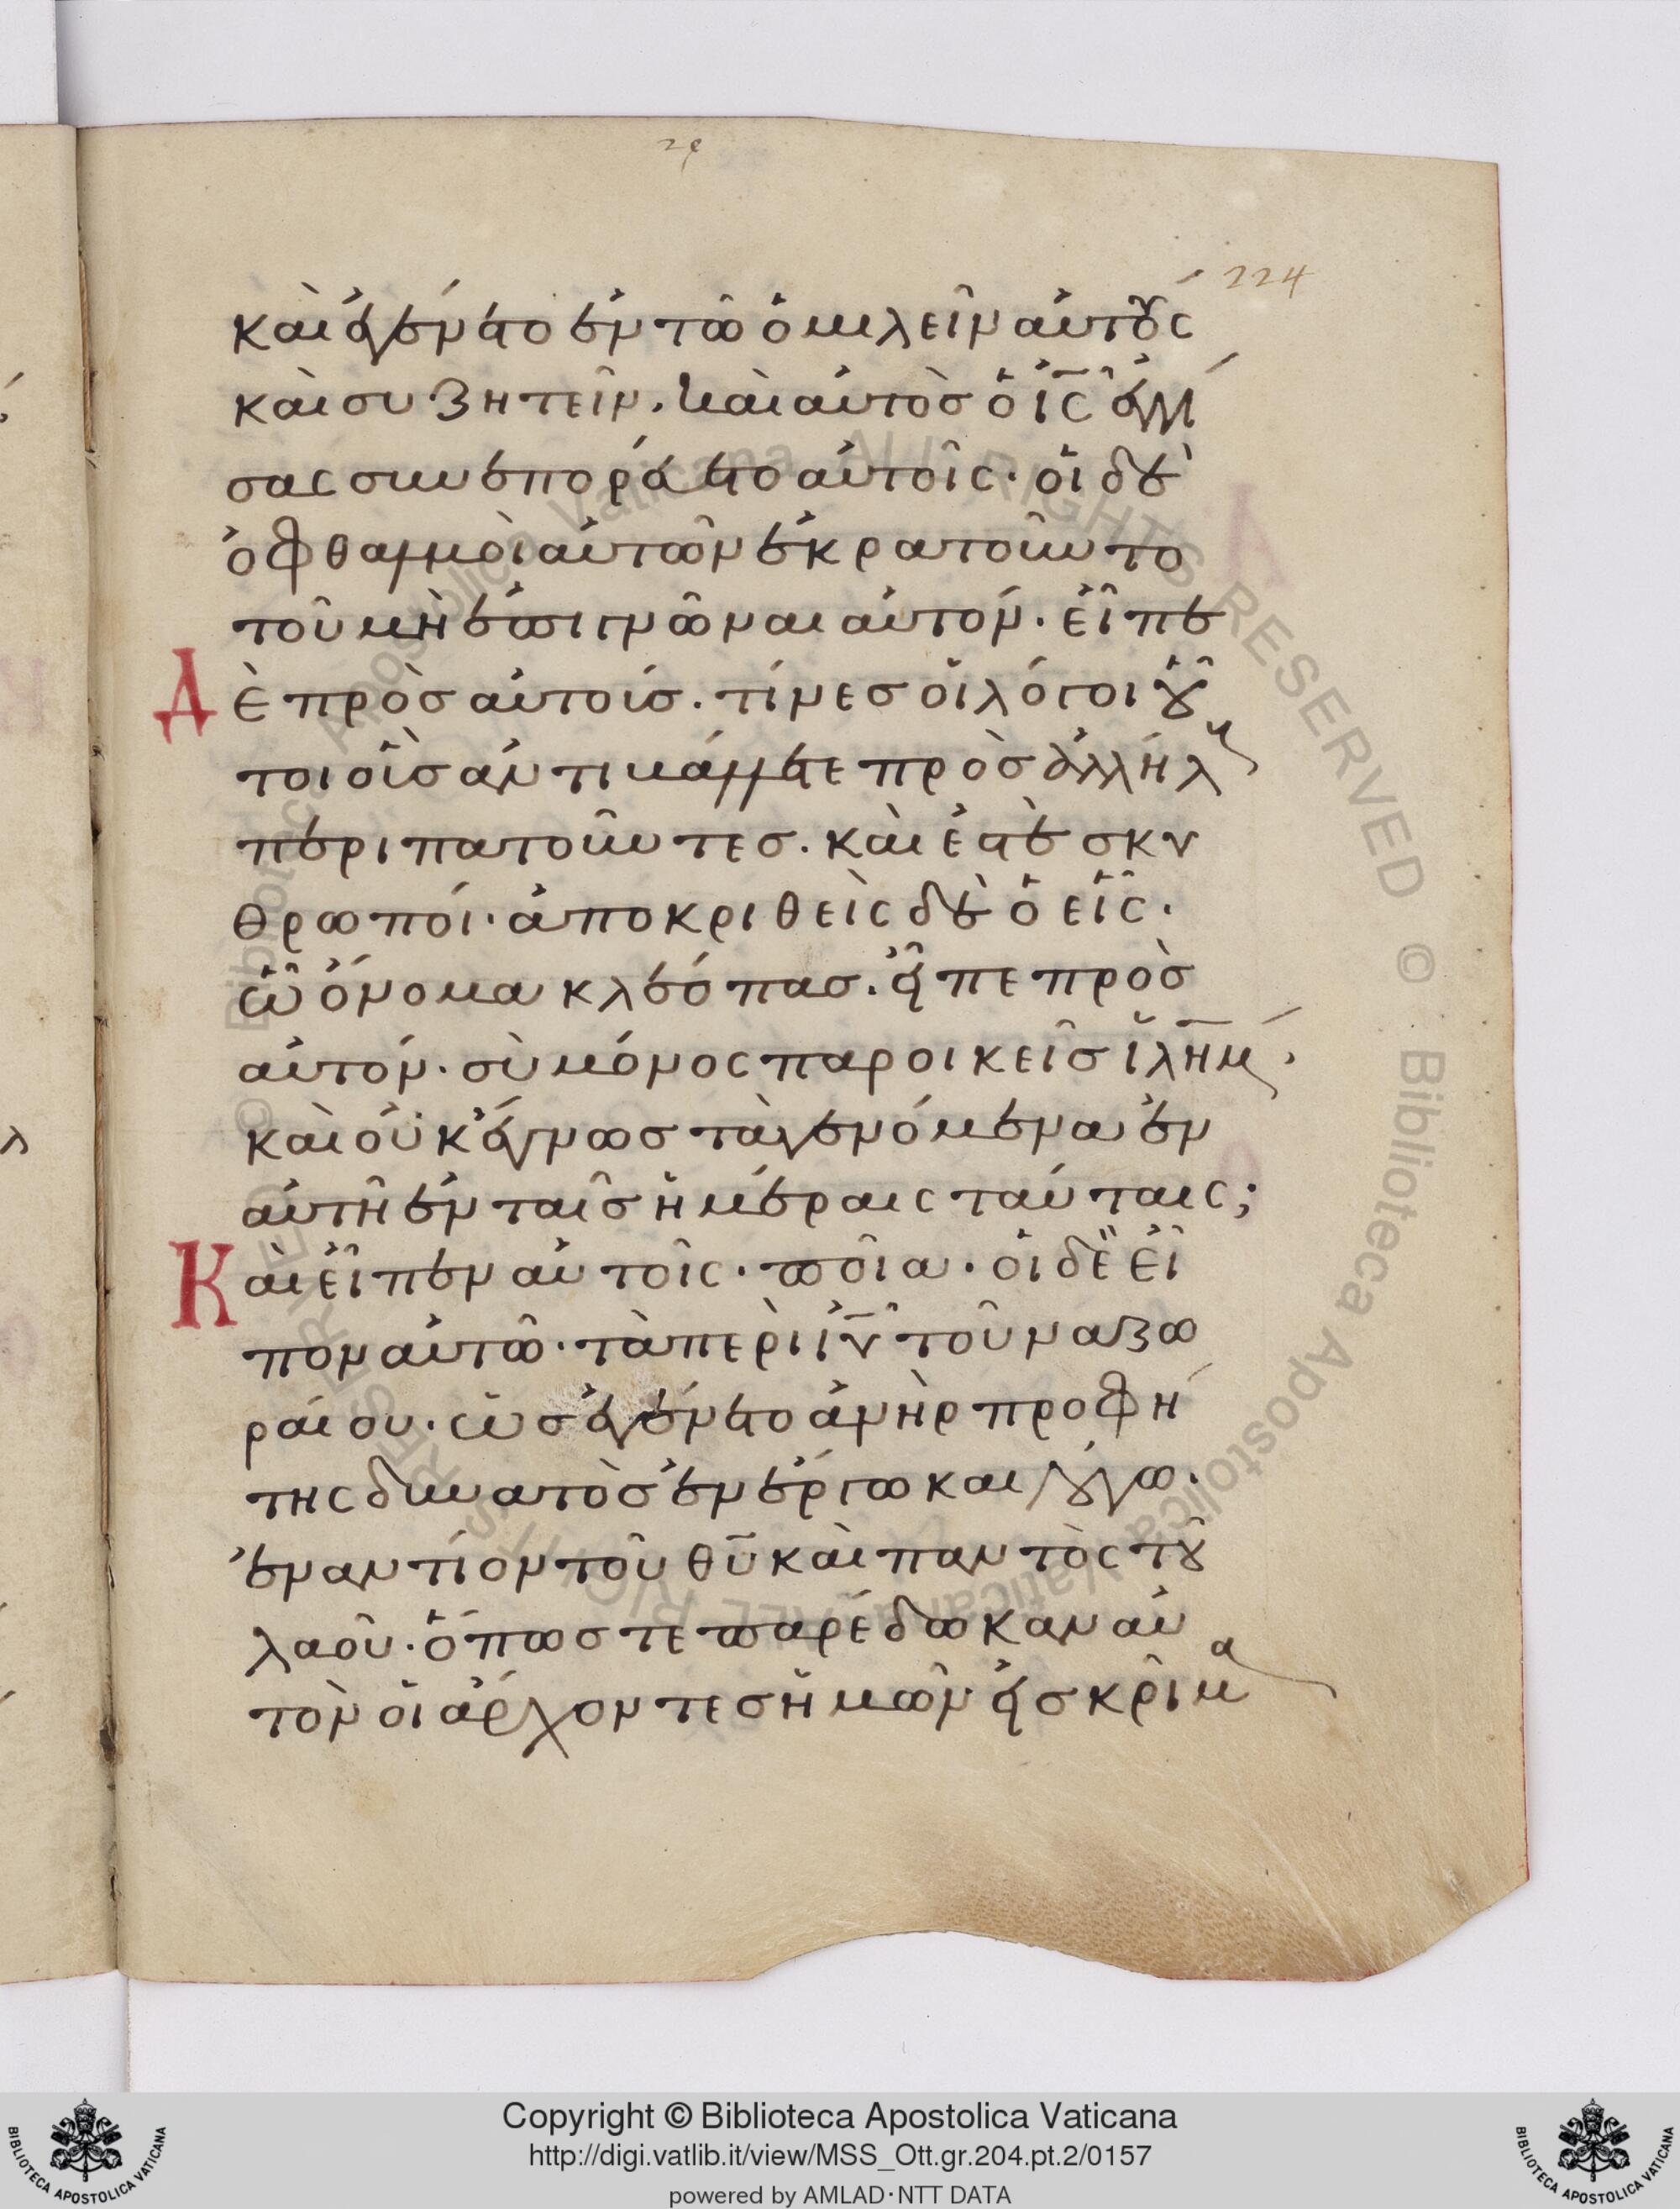 224
καὶ ἐγένετο ἐν τῶ ὁμιλεῖν αὐτοὺς
καὶ συζητεῖν. καὶ αὐτὸς ὁ ἰς ἐγγί
σας συνεπορεύετο αὐτοῖς· οἱ δὲ
ὀφθαλμοὶ αὐτῶν ἐκρατοῦντο
τοῦ μὴ ἐπιγνῶναι αὐτόν· εἶπε
Δὲ πρὸς αὐτούσ. τίνες οἱ λόγοι οὗ
τοι οἷς ἀντιβάλλετε πρὸς ἀλλήλους
περιπατοῦντες. καὶ ἐστὲ σκυ
θρωποί· ἀποκριθεὶς δὲ ὁ εἷς·
ᾧ ὄνομα κλεόπας. εἶπε πρὸς
αὐτόν· σὺ μόνος παροικεῖς ἰλημ.
καὶ οὐκ ἔγνως τὰ γενόμενα ἐν
αὐτῆ ἐν ταῖς ἡμέραις ταύταις;
Καὶ εἶπεν αὐτοῖς· ποῖα· οἱ δὲ εἶ
πον αὐτῶ· τὰ περὶ ιυ τοῦ ναζω
ραίου. ὡς ἐγένετο ἀνὴρ προφή
της δυνατὸς ἐν ἔργω και λόγω·
ἐναντίον τοῦ θυ καὶ παντὸς τοῦ
λαοῦ· ὅπως τε παρέδωκαν αὐ
τὸν οἱ ἄρχοντες ἡμῶν εἰς κρῖμα
© Biblioteca Apostolica Vaticana ALL RIGHTS RESERVED © Biblioteca Apostolica Vaticana ALL RIGHTS RESERVED
BIBLIOTECA APOSTOLICA VATICANA
Copyright © Biblioteca Apostolica Vaticana
http://digi.vatlib.it/view/MSS_Ott.gr.204.pt.2/0157
powered by AMLAD·NTT DATA
BIBLIOTECA APOSTOLICA VATICANA